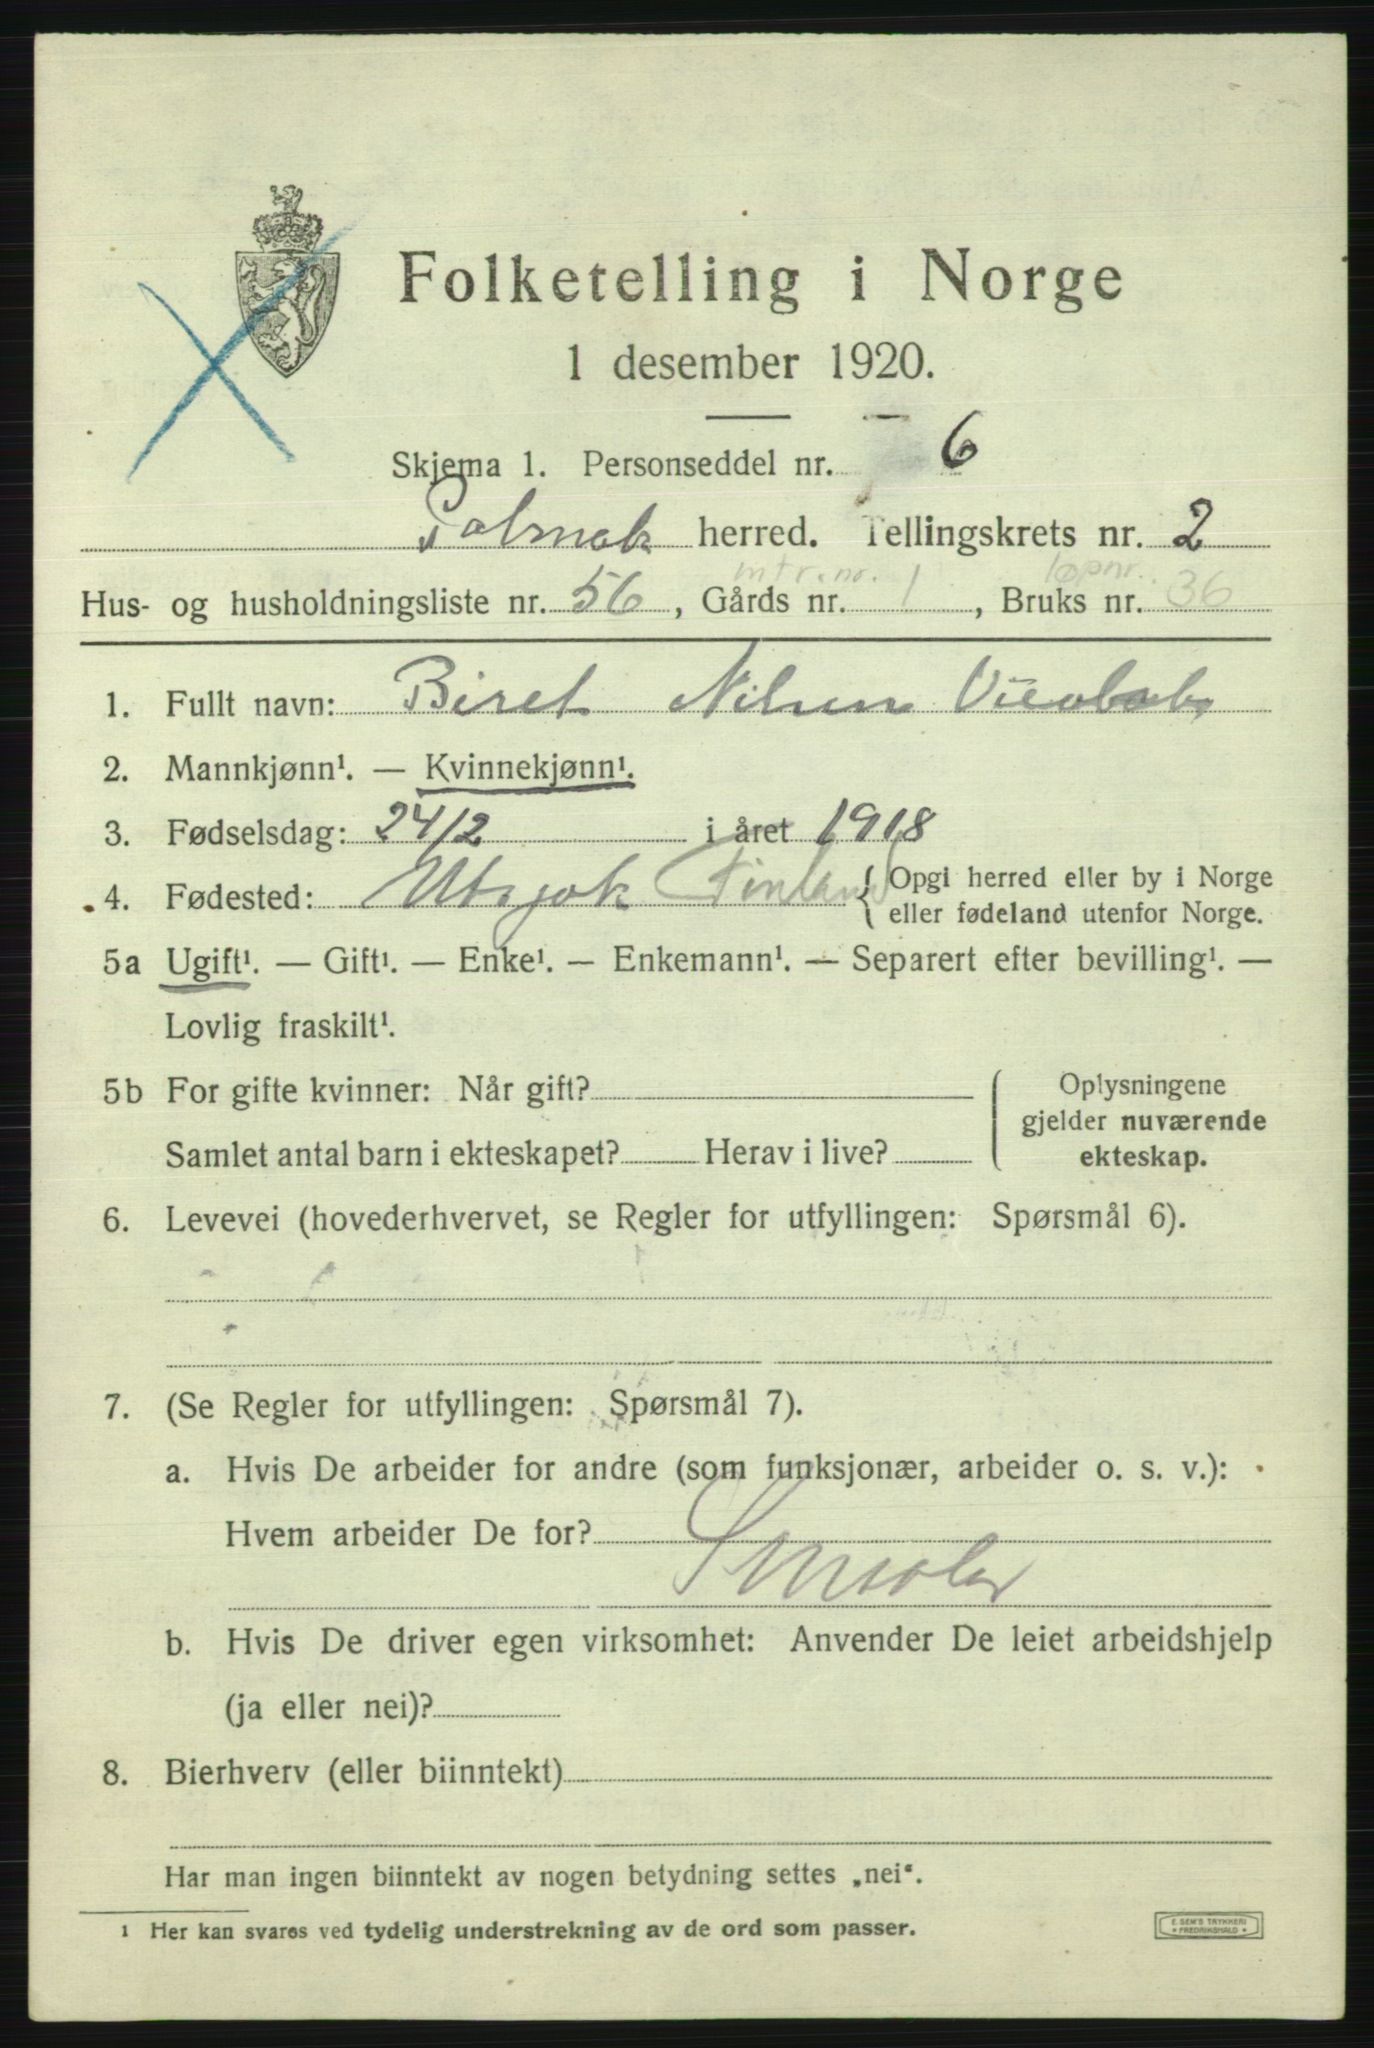 Folketelling i Norge
1 desember 1920.
Skjema 1. Personseddel nr. 6
Polmak herred. Tellingskrets nr. 2
mtr. nr. løpnr.
Hus- og husholdningsliste nr. 56, Gårds nr. 1, Bruks nr. 36
1. Fullt navn: Biret Nilsen
2. Mannkjønn¹. — Kvinnekjønn¹.
3. Fødselsdag: 24/2 i året 1918
4. Fødested: Utsjok Finland { Opgi herred eller by i Norge
eller fødeland utenfor Norge.
5a Ugift¹. — Gift¹. — Enke¹. — Enkemann¹. — Separert efter bevilling¹. —
Lovlig fraskilt¹.
5b For gifte kvinner: Når gift?
Samlet antal barn i ekteskapet? Herav i live?
Oplysningene
gjelder nuværende
ekteskap.
6. Levevei (hovederhvervet, se Regler for utfyllingen: Spørsmål 6).
7. (Se Regler for utfyllingen: Spørsmål 7).
a. Hvis De arbeider for andre (som funksjonær, arbeider o. s. v.):
Hvem arbeider De for?
b. Hvis De driver egen virksomhet: Anvender De leiet arbeidshjelp
(ja eller nei)?
8. Bierhverv (eller biinntekt)
Har man ingen biinntekt av nogen betydning settes „nei“.
1 Her kan svares ved tydelig understrekning av de ord som passer.
E. SEM'S TRYKKERI
• FREDRIKSHALD •